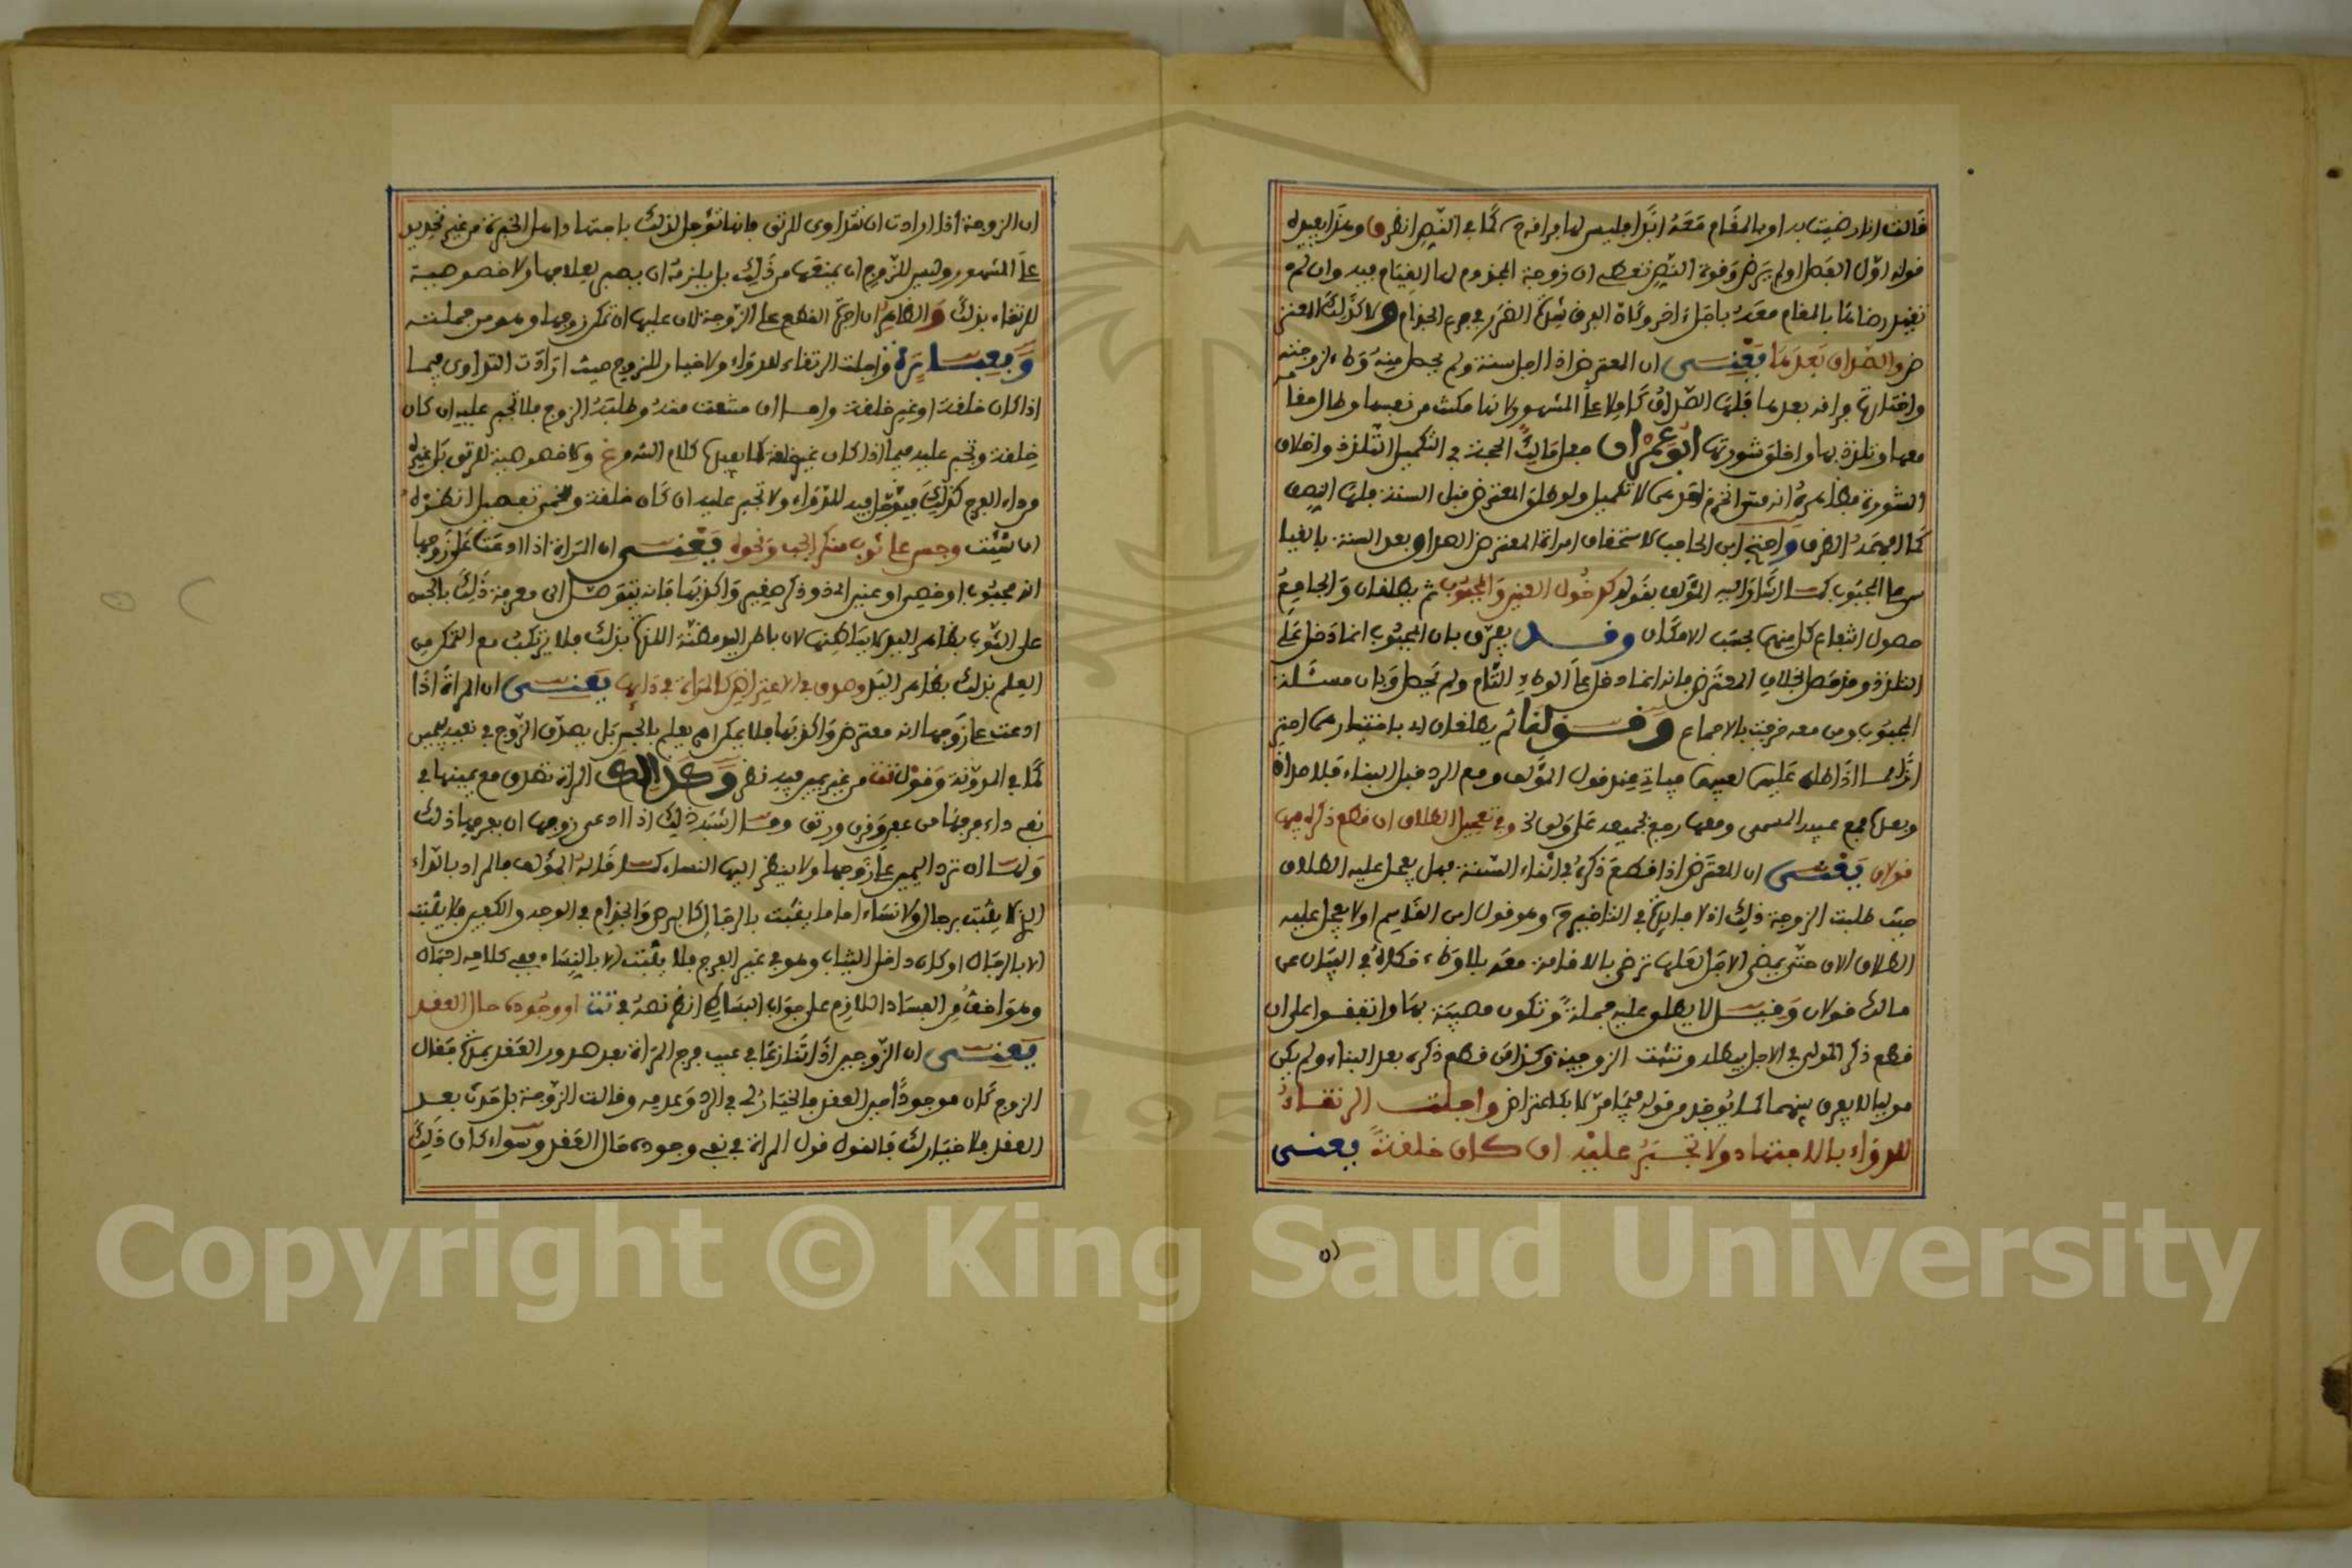 قالت انا رضيت به او بالمقام معه ابدا فليس لها فراقه كما في النص انظر ق وهذا يفيده
قوله اول الفصل او لم يرض وقوة النص تعطي ان زوجة المجذوم لها القيام فيه وان لم
تقيد رضاها بالمقام معه باجل اخر وكان الفرق شدة الضرر في جرم الجذام ولا كذلك المعتر
ض والصداق بعدها يعني ان المعترض اذا اجل سنة ولم يحصل منه وطء لزوجته
واختارت فراقه بعدها فلها الصداق كاملا على المشهور لانها مكنت من نفسها وطال مقامه
معها وتلذذ بها واخلق شورتها ابو عمران جعل مالك الحجة في التكميل التلذذ واخلاق
الشورة فظاهره انه متى انخرم احدهما لا تكميل ولو طلق المعترض قبل السنة فلها النصف
كما اعتمده ق واحتج ابن الحاجب لاستحقاق امراة المعترض الصداق بعد السنة بالقيا
س على المجبوب كما اشار اليه المؤلف بقوله كدخول العنين والمجبوب ثم يطلقان والجامع
حصول انتفاع كل منهما بحسب الامكان وقد يفرق بان المجبوب انما دخل على
التلذذ وقد حصل بخلاف المعترض فانه انما دخل على الوطء التام ولم يحصل وبان مسئلة
المجبوب ومن معه خرجت بالاجماع وقولنا ثم يطلقان اي باختيارهما احترا
زا مما اذا طلق عليهما لعيبهما فياتي عند قول المؤلف ومع الرد قبل البناء فلا صداق
وبعده فمع عيبه المسمى ومعها رجع بجميعه على ولي الخ وفي تعجيل الطلاق ان قطع ذكره فيها
قولان يعني ان المعترض اذا قطع ذكره في اثناء السنة فهل يعجل عليه الطلاق
حيث طلبت الزوجة ذلك اذ لا فائدة في التاخير وهو قول ابن القاسم او لا يعجل عليه
الطلاق الان حتى يمضي الاجل لعلها ترضى بالاقامة معه بلا وطء حكاه في البيان عن
مالك قولان وقيل لا يطلق عليه جملة وتكون مصيبة بها واتفقوا على ان
قطع ذكر المولي في الاجل يبطله وتثبت الزوجية وكذا من قطع ذكره بعد البناء ولم يكن
موليا لا يفرق بينهما كما يوخذ من قوله فيما مر لا بكاعتراض واجلت الرتقاء
للدواء بالاجتهاد ولا تجبر عليه ان كان خلقة يعني
ان
ان الزوجة اذا ارادت ان تتداوى للرتق فانها تؤجل لذلك باجتهاد اهل الخبرة من غير تحديد
على المشهور وليس للزوج ان يمنعها من ذلك بل يلزمه ان يصبر لعلاجها ولا خصوصية
للرتقاء بذلك والظاهر ان اجرة القطع على الزوجة لان عليها ان تمكن زوجها وهو من جملته
وبعبارة واجلت الرتقاء للدواء ولا خيار للزوج حيث ارادت التداوي فيما
اذا كان خلقة او غير خلقة واما ان منعت منه وطلبه الزوج فلا تجبر عليه ان كان
خلقة وتجبر عليه فيما اذا كان غير خلقة كما يفيده كلام الشرح ولا خصوصية للرتق بل غيره
من داء الفرج كذلك فيؤجل فيه للدواء ولا تجبر عليه ان كان خلقة وللخمي تفصيل انظره
ان شئت وجس على ثوب منكر الجب ونحوه يعني ان المراة اذا ادعت على زوجها
انه مجبوب او خصي او عنين اي ذو ذكر صغير واكذبها فانه يتوصل الى معرفة ذلك بالجس
على الثوب بظاهر اليد لا بباطنها لان باطن اليد مظنة اللذة بذلك فلا يرتكب مع التمكن من
العلم بذلك بظاهر اليد وصدق في الاعتراض كالمراة في دائها يعني ان المراة اذا
ادعت على زوجها انه معترض واكذبها فلا يمكن ان يعلم بالجس بل يصدق الزوج في نفيه بيمين
كما في المدونة وقول تت من غير يمين فيه نظر وكذلك المراة تصدق مع يمينها في
نفي داء فرجها من عفل وقرن ورتق وما اشبه ذلك اذا ادعى زوجها ان بفرجها ذلك
ولها ان ترد اليمين على زوجها ولا ينظر اليها النساء كما قاله المؤلف فالمراد بالداء
الذي لا يثبت برجال ولا نساء اما ما يثبت بالرجال كالبرص والجذام في الوجه والكفين فلا يثبت
الا بالرجال او كان داخل الثياب وهو في غير الفرج فلا يثبت الا بالنساء ففي كلامه اجمال
وهو اخف من الفساد اللازم على جواب البساطي انظر نصه في تت او وجوده حال العقد
يعني ان الزوجين اذا تنازعا في عيب فرج المراة بعد صدور العقد بمدة فقال
الزوج كان موجودا حين العقد فالخيار لي في الرد وعدمه وقالت الزوجة بل حدث بعد
العقد فلا خيار لك فالقول قول المراة في نفي وجوده حال العقد وسواء كان ذلك